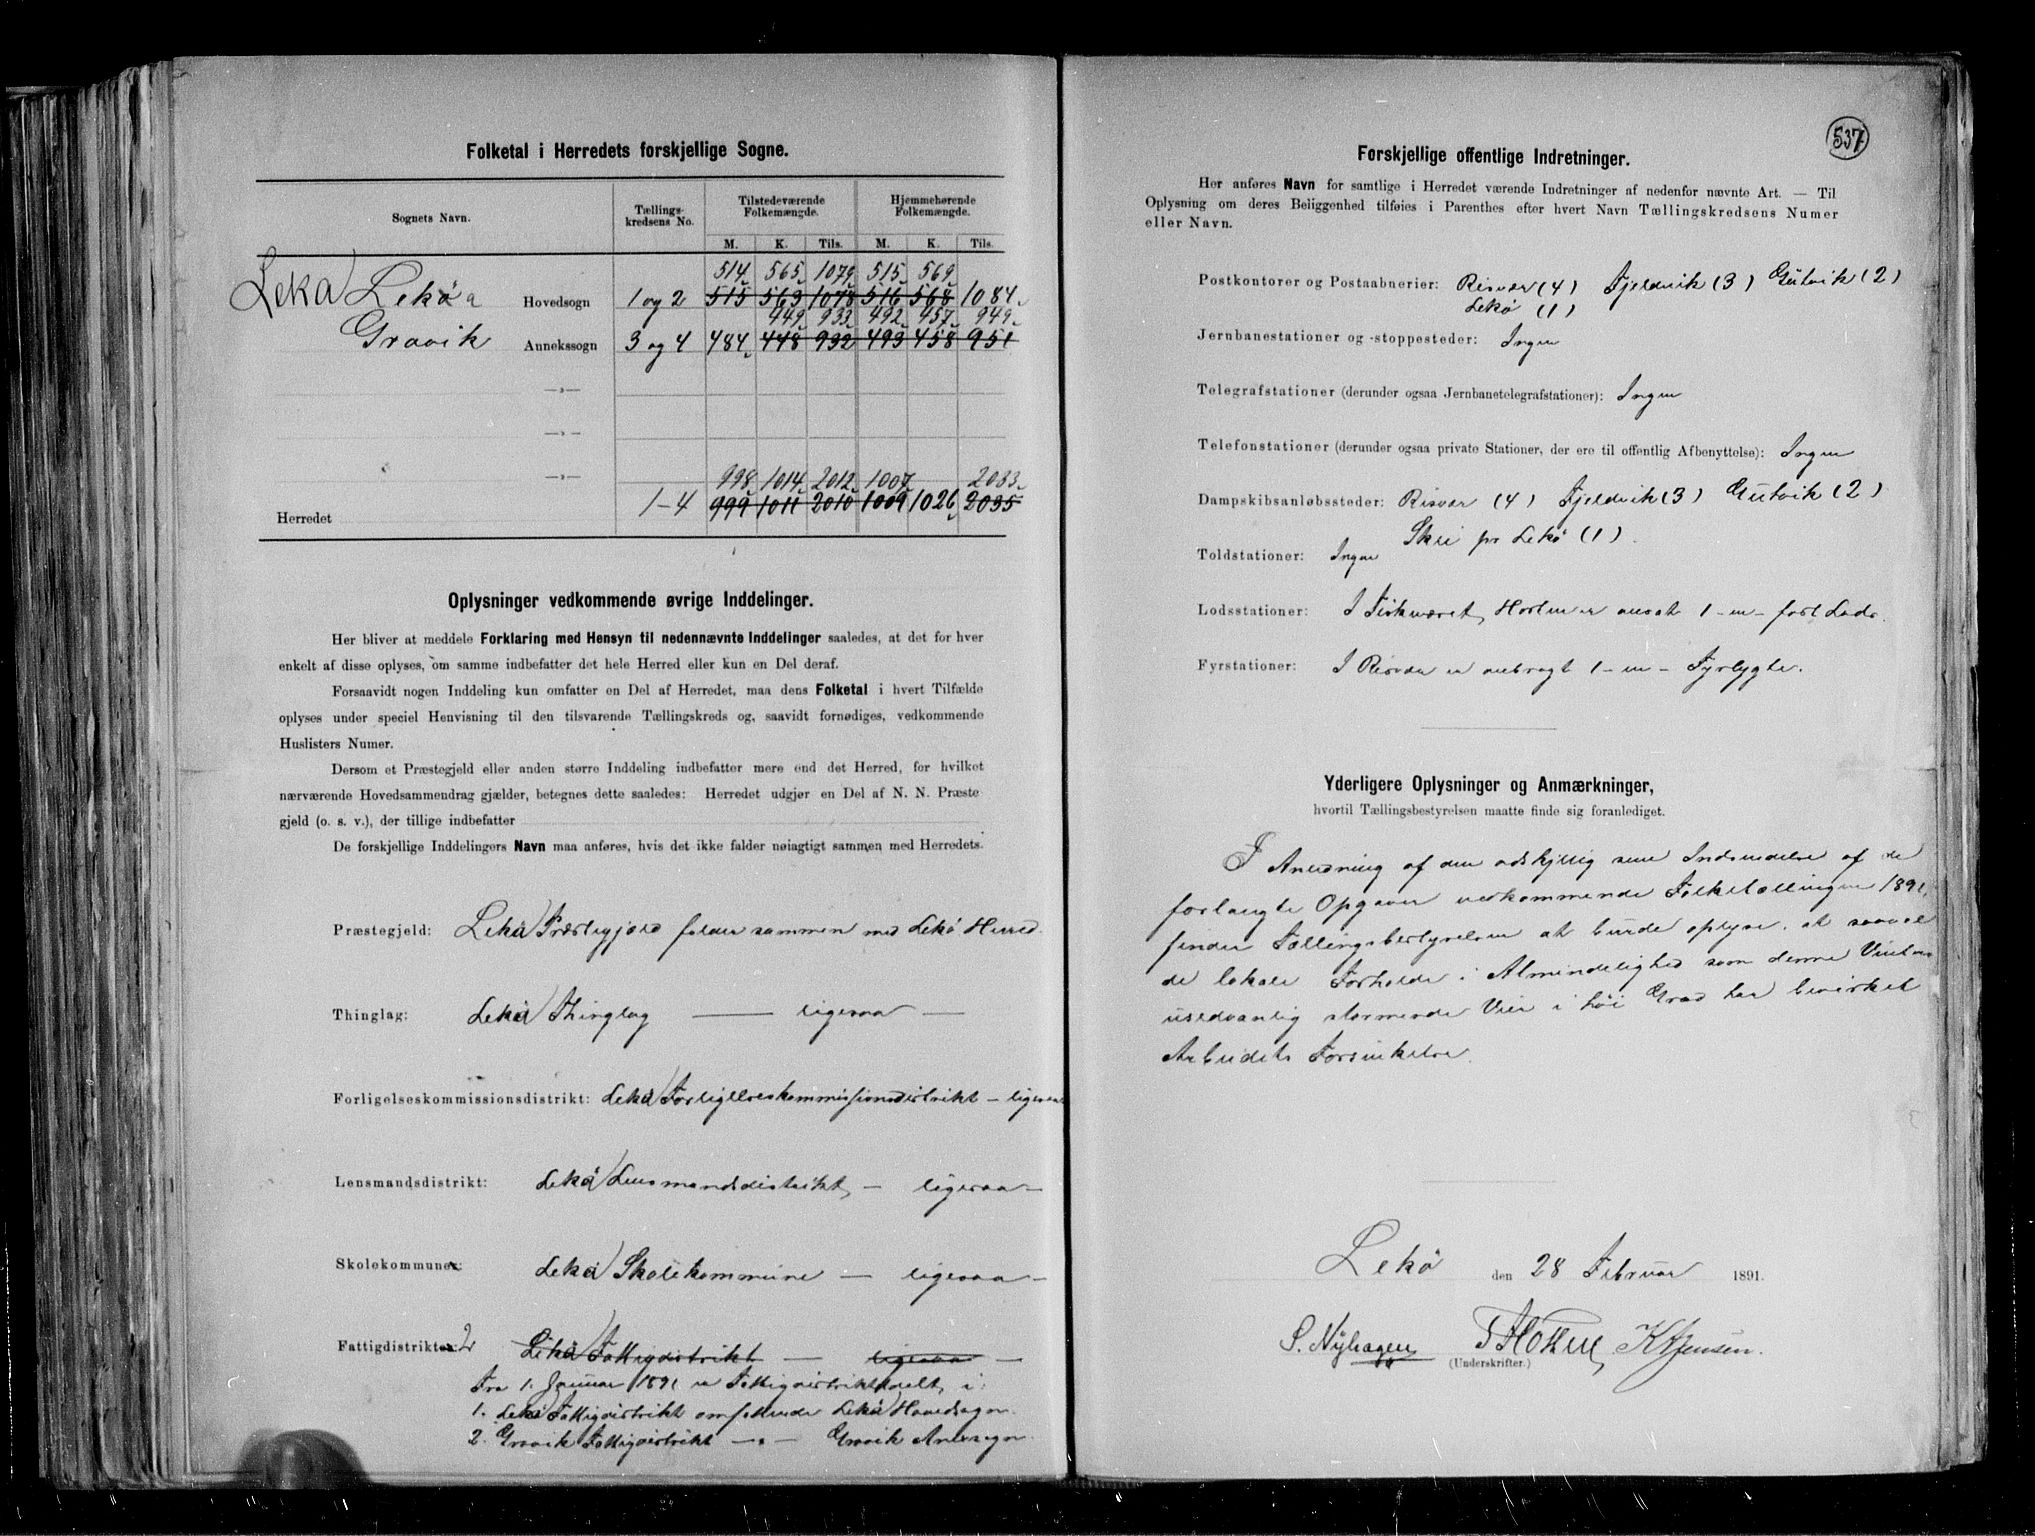 Folketal i Herredets forskjellige Sogne.
Sognets Navn.
Tællings-
kredsens No.
Tilstedeværende
Folkemængde.
Hjemmehørende
Folkemængde.
M. K. Tils. M. K. Tils.
514 565 1079 515 569
Leka) Lekøa Hovedsogn 1 og 2 515 563 1078 516 568 1084
449 933 492 457 949
Gravik Annekssogn 3 og 4 484 448 932 493 458 951
—»—
—»—
—»—
998 1014 2012 1007 2033
Herredet 1-4 999 1011 2010 1009 1026 2035
Oplysninger vedkommende øvrige Inddelinger.
Her bliver at meddele Forklaring med Hensyn til nedennævnte Inddelinger saaledes, at det for hver
enkelt af disse oplyses, om samme indbefatter det hele Herred eller kun en Del deraf.
Forsaavidt nogen Inddeling kun omfatter en Del af Herredet, maa dens Folketal i hvert Tilfælde
oplyses under speciel Henvisning til den tilsvarende Tællingskreds og, saavidt fornødiges, vedkommende
Huslisters Numer.
Dersom et Præstegjeld eller anden større Inddeling indbefatter mere end det Herred, for hvilket
nærværende Hovedsammendrag gjælder, betegnes dette saaledes: Herredet udgjør en Del af N. N. Præste
gjeld (o. s. v.), der tillige indbefatter
De forskjellige Inddelingers Navn maa anføres, hvis det ikke falder nøiagtigt sammen med Herredets.
Præstegjeld: Leka) Præstegjeld falder sammen med Lekø Herred.
Thinglag: Leka) Thinglag — ligesaa —
Forligelseskommissionsdistrikt: Leka) Forligelseskommissionsdistrikt – ligesaa
Lensmandsdistrikt: Leka) Lensmandsdistrikt, — ligesaa —
Skolekommuner: Leka) Skolekommune — ligesaa —
Fattigdistrikter: 2 Leka) Fattigdistrikt — ligesaa —
Fra 1. Januar 1891 er Fattigdistriktet delt i:
1. Leka) Fattigdistrikt omfattende Leka) Hovedsogn.
2. Gravik Fattigdistrikt — " — Gravik Anxsogn.
537
Forskjellige offentlige Indretninger.
Her anføres Navn for samtlige i Herredet værende Indretninger af nedenfor nævnte Art. — Til
Oplysning om deres Beliggenhed tilføies i Parenthes efter hvert Navn Tællingskredsens Numer
eller Navn.
Postkontorer og Postaabnerier: Risvær (4) Fjeldvik (3) Gutvik (2)
Lekø (1)
Jernbanestationer og -stoppesteder: Ingen
Telegrafstationer (derunder ogsaa Jernbanetelegrafstationer): Ingen
Telefonstationer (derunder ogsaa private Stationer, der ere til offentlig Afbenyttelse): Ingen
Dampskibsanløbssteder: Risvær (4) Fjeldvik (3) Gutvik (2)
Skei pr Lekø (1).
Toldstationer: Ingen
Lodsstationer: I Fiskeværet, Horten er ansat 1 – en – fast Lods.
Fyrstationer: I Risvær er anbragt 1 – en – Fyrlygte.
Yderligere Oplysninger og Anmærkninger,
hvortil Tællingsbestyrelsen maatte finde sig foranlediget.
I Anledning af den adskillig sene Indsendelse af de
forlangte Opgaver vedkommende Folketællingen 1891,
finder Tællingsbestyrelsen at burde oplyse, at saavel
de lokale Forholde i Almindelighed som denne Vinters
usedvanlig stormende Veir i høi Grad har bevirket
Arbeidets Forsinkelse.
Lekø den 28 Februar 1891.
S. Nyhagen K Jensen.
(Underskrifter.)